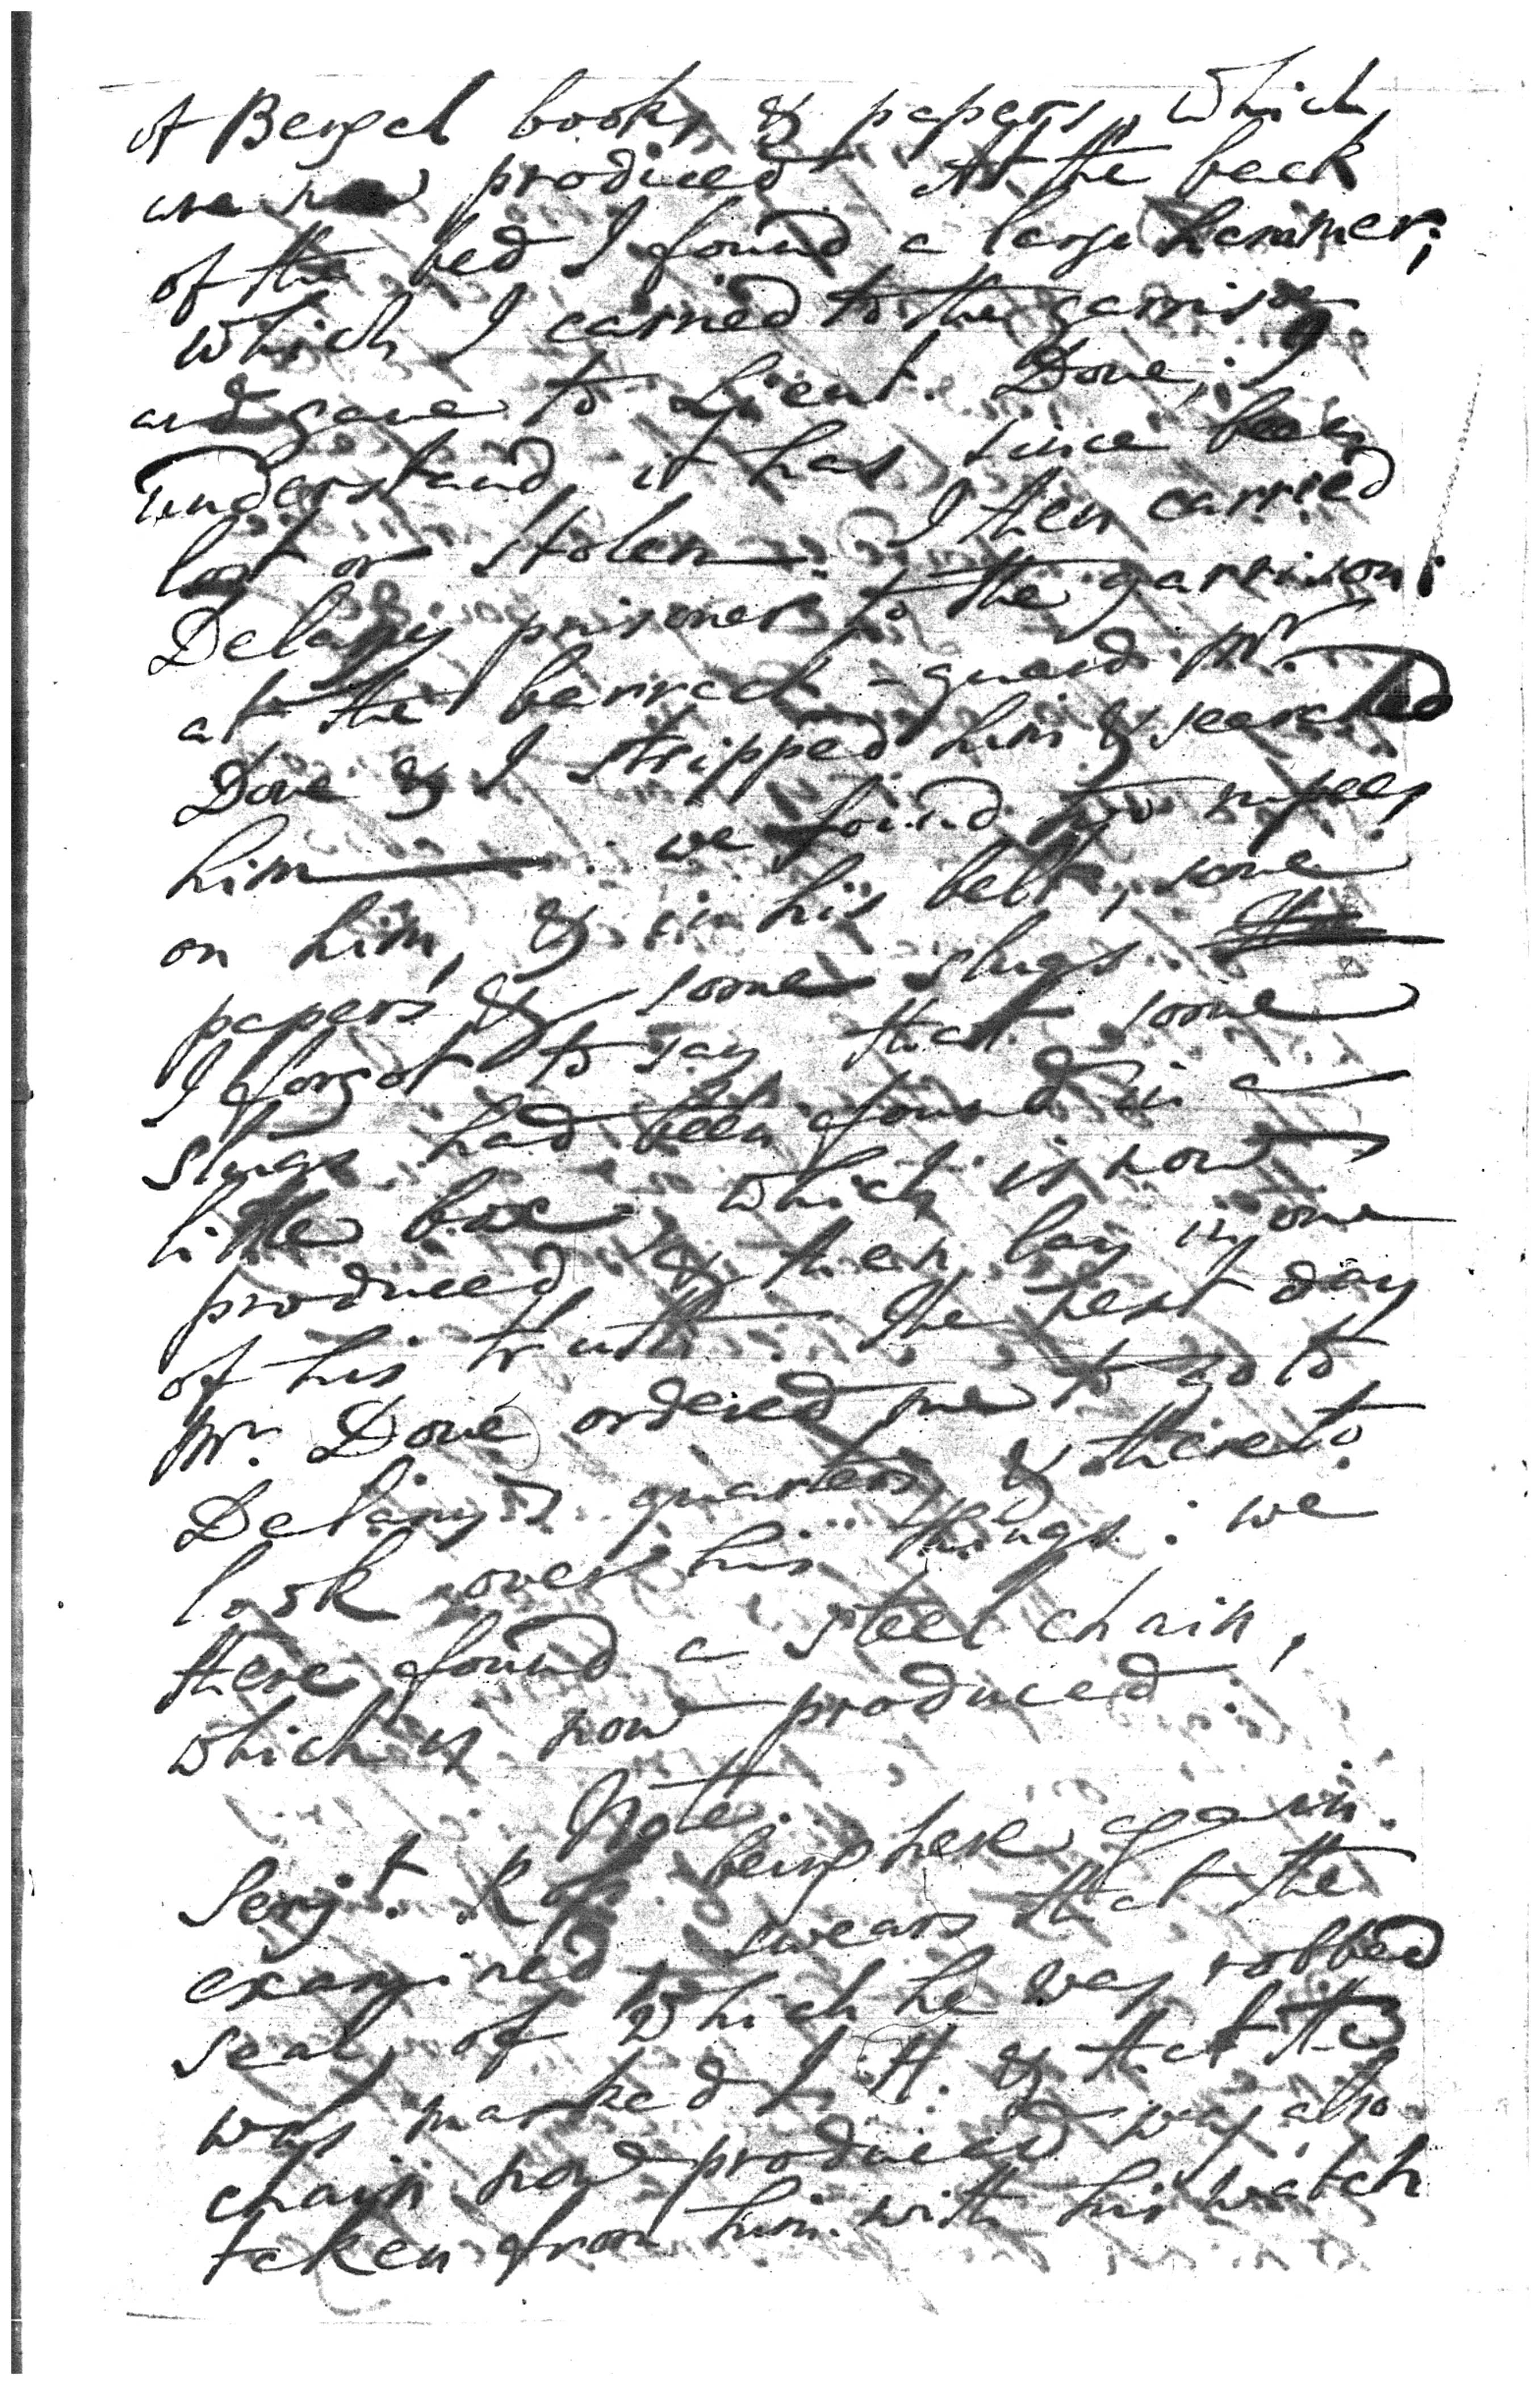 of Bengal books & papers, which
are now produced At the back
of the bed I found a large hammer;
which I carried to the garrison
and gave to Lieut. Dove; I
understand it has since been
lost or stolen. I then carried
Delany prisoner to the garrison:
at the barrack-guard Mr.
Dove & I stripped him & searched
him . we found two rupees
on him, & in his belt, some
papers & some slugs.
I forgot to say that some
slugs had been found in a
little box which is now
produced, & then lay in one
of his trunks The next day
Mr. Dove ordered me to go to
Delany's quarters, & there to
look over his things: we
there found a steel chain,
which is now produced.
Note.
Serjt. being here again
examined, swears that the
seal, of which he was robbed
was marked I. H. & that the
chain now produced was also
taken from him with his watch